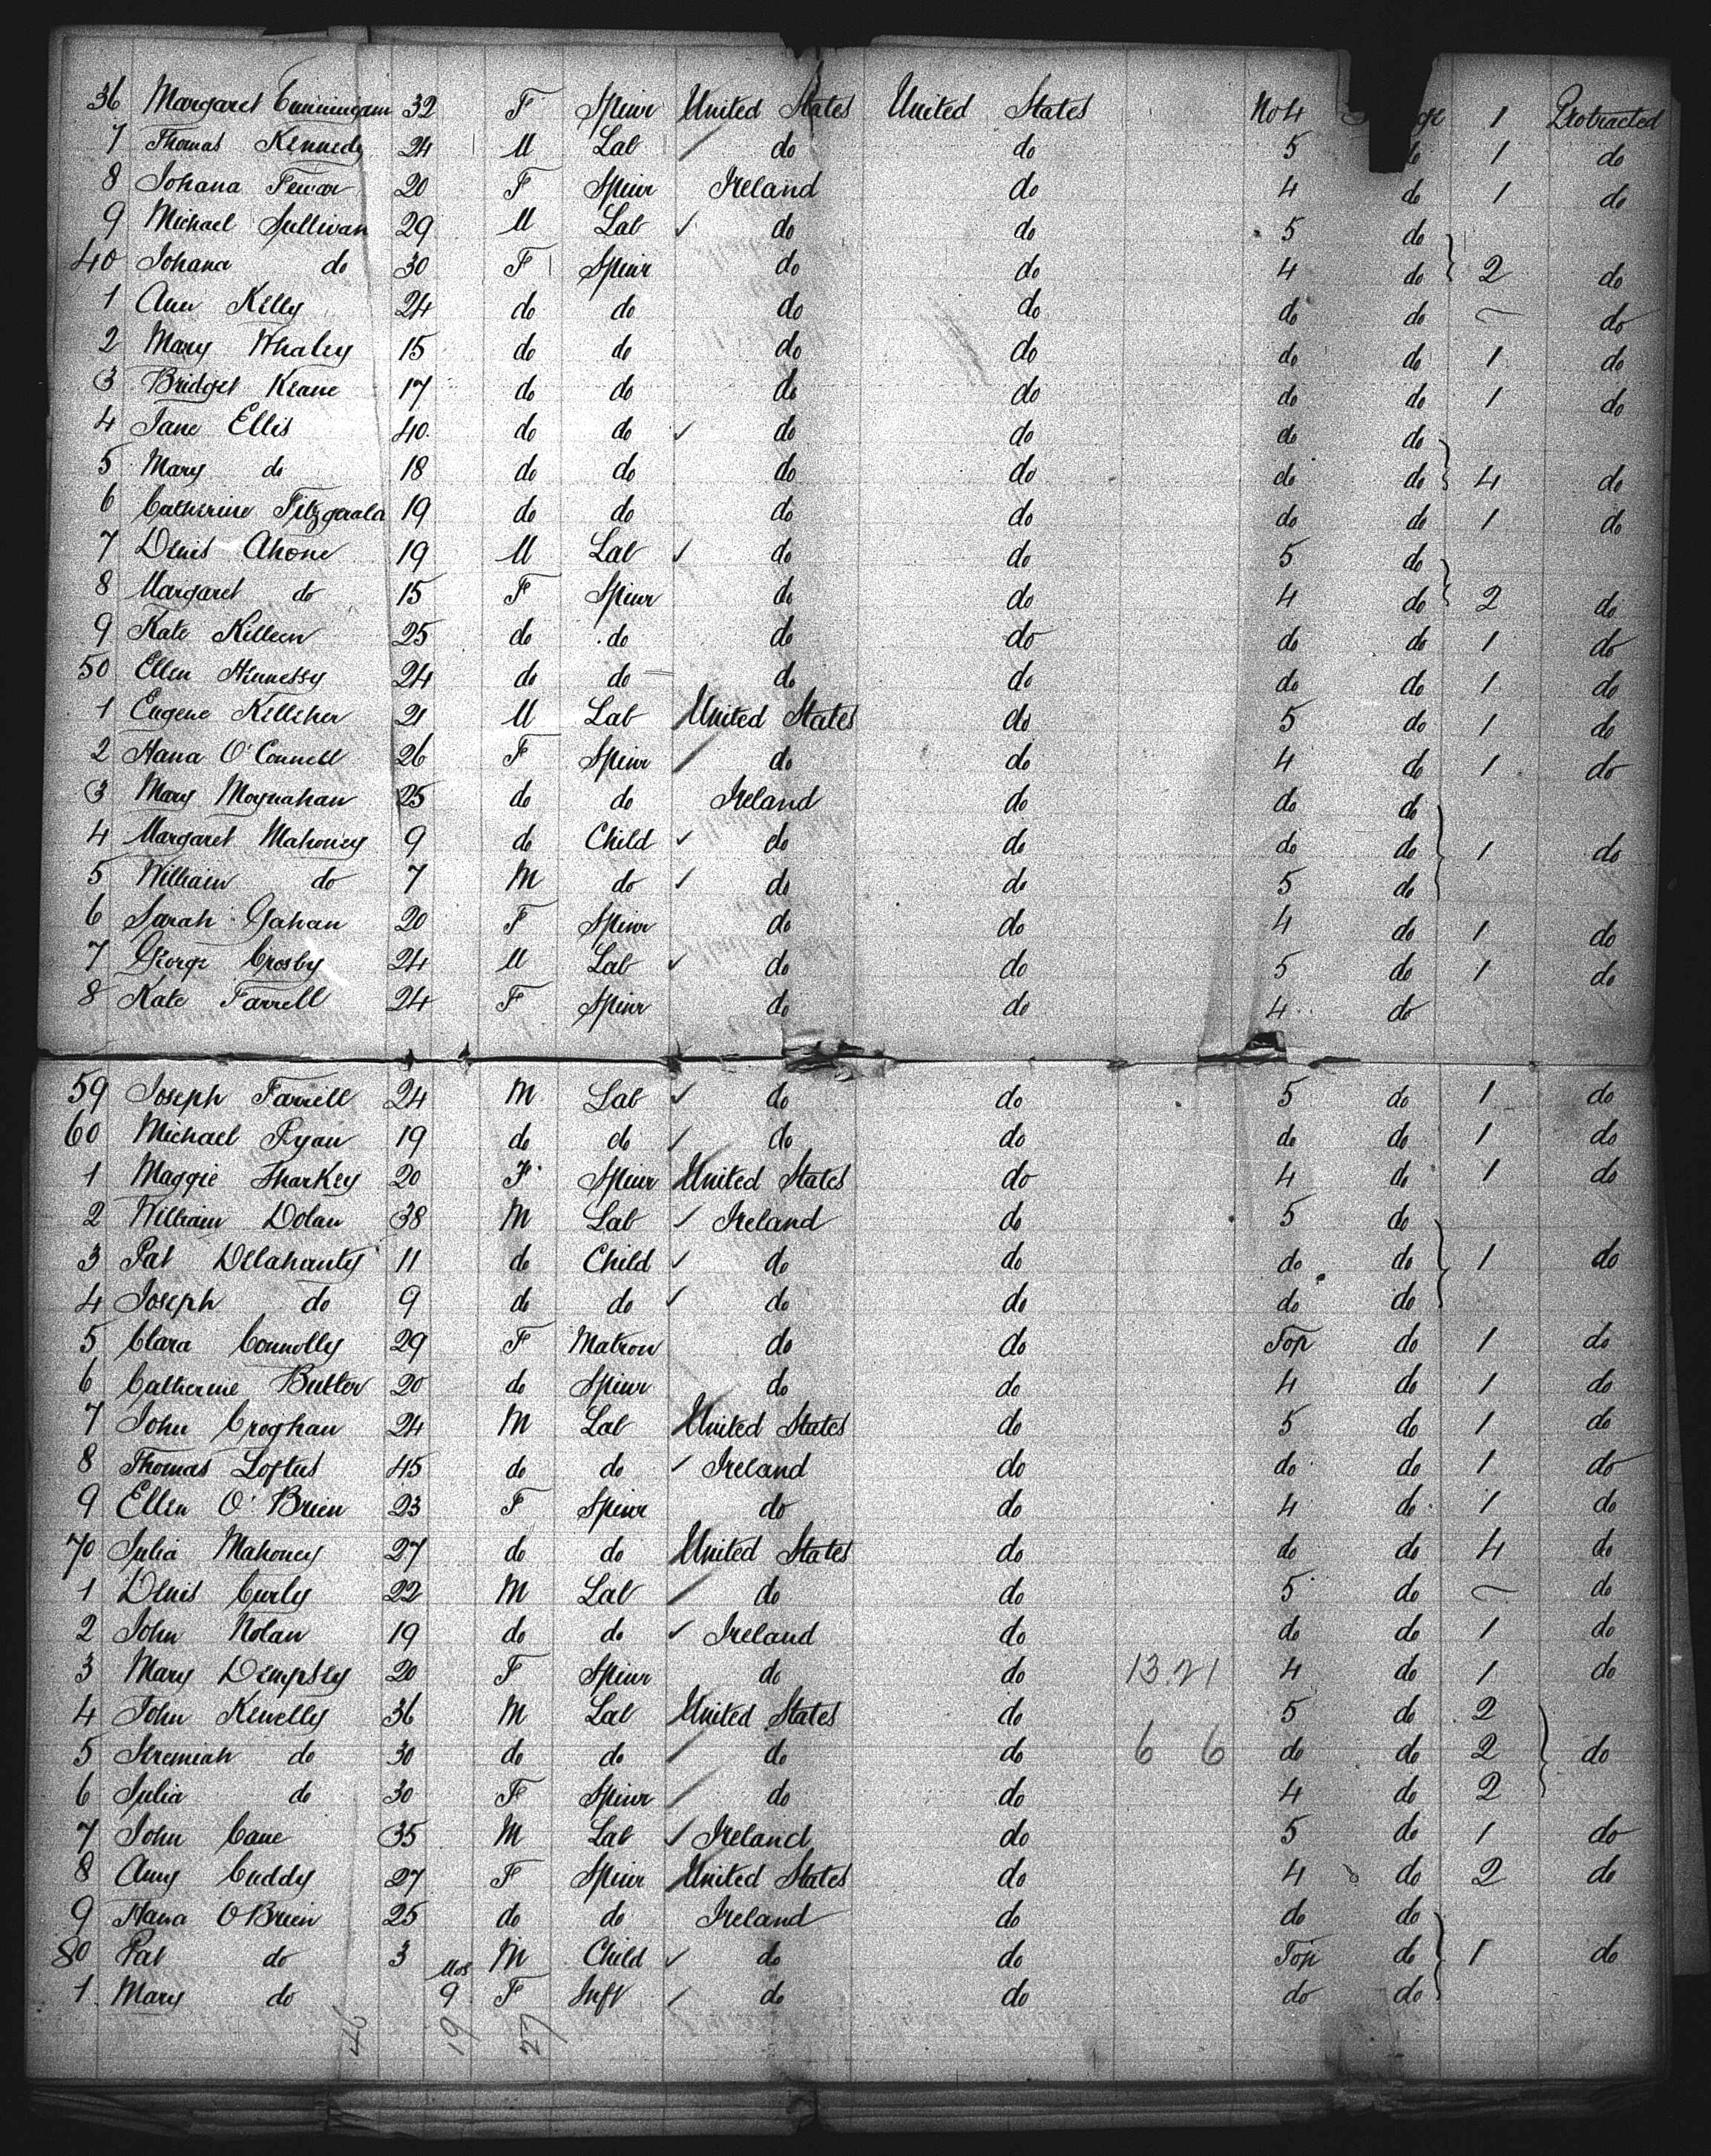 36 Margaret Cunningam 32 F Spinr United States United States No 4 1 Protracted
7 Thomas Kennedy 24 M Lab do do 5 do 1 do
8 Johana 20 F Spinr Ireland do 4 do 1 do
9 Michael Sullivan 29 M Lab do do 5 do
40 Johana do 30 F Spinr do do 4 do 2 do
1 Ann Kelly 24 do do do do do do ~ do
2 Mary Whaley 15 do do do do do do 1 do
3 Bridget Keane 17 do do do do do do 1 do
4 Jane Ellis 40 do do do do do do
5 Mary do 18 do do do do do do 4 do
6 Catherine Fitzgerald 19 do do do do do do 1 do
7 Denis Ahone 19 M Lab do do 5 do
8 Margaret do 15 F Spinr do do 4 do 2 do
9 Kate Killeen 25 do do do do do do 1 do
50 Ellen Hennessy 24 do do do do do do 1 do
1 Eugene Killiher 21 M Lab United States do 5 do 1 do
2 Hana O'Connell 26 F Spinr do do 4 do 1 do
3 Mary Moynahan 25 do do Ireland do do do
4 Margaret Mahoney 9 do Child do do do do 1 do
5 William do 7 M do do do 5 do
6 Sarah Gahan 20 F Spinr do do 4 do 1 do
7 George Crosby 24 M Lab do do 5 do 1 do
8 Kate Farrell 24 F Spinr do do 4 do
59 Joseph Farrell 24 M Lab do do 5 do 1 do
60 Michael Ryan 19 do do do do do do 1 do
1 Maggie Sharkey 20 F Spinr United States do 4 do 1 do
2 William Dolan 38 M Lab Ireland do 5 do
3 Pat Delahanty 11 do Child do do do do 1 do
4 Joseph do 9 do do do do do do
5 Clara Connolly 29 F Matron do do Top do 1 do
6 Catherine Butler 20 do Spinr do do 4 do 1 do
7 John Croghan 24 M Lab United States do 5 do 1 do
8 Thomas Loftus 45 do do Ireland do do do 1 do
9 Ellen O'Brien 23 F Spinr do do 4 do 1 do
70 Julia Mahoney 27 do do United States do do do 4 do
1 Denis Curly 22 M Lab do do 5 do ~ do
2 John Nolan 19 do do Ireland do do do 1 do
3 Mary Dempsey 20 F Spinr do do 13.21 4 do 1 do
4 John Kenelly 36 M Lab United States do 5 do 2
5 Jeremiah do 30 do do do do 6 6 do do 2 do
6 Julia do 30 F Spinr do do 4 do 2
7 John Cane 35 M Lab Ireland do 5 do 1 do
8 Amy Cuddy 27 F Spinr United States do 4 do 2 do
9 Hana O'Brien 25 do do Ireland do do do
80 Pat do 3 M Child do do Top do 1 do
1 Mary do Mos 9 F Inft do do do do
46 19 27